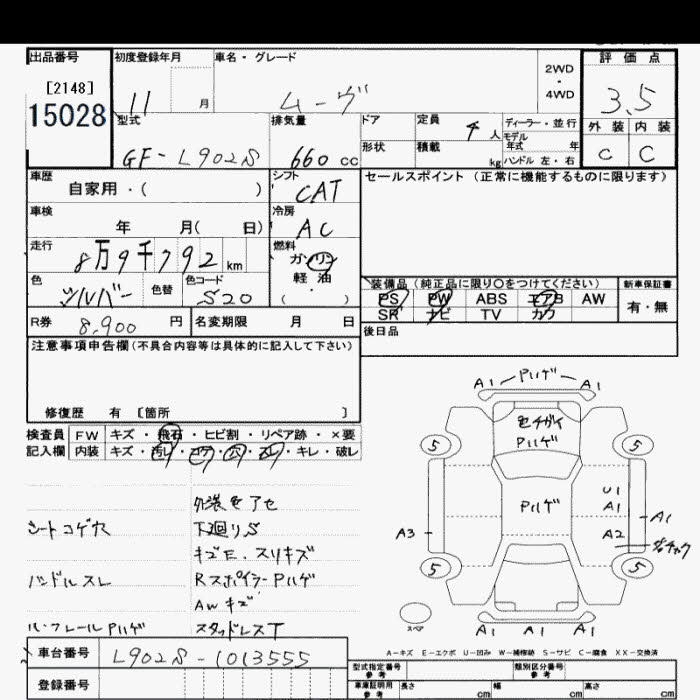 出品番号
[2148]
15028
初度登録年月
11 月
車名・グレード
ムーヴ
2WD
・
4WD
評価点
3.5
外装 内装
C C
型式
GF-L902S
排気量
660 cc
ドア
形状
定員
4 人
積載
kg
ディーラー・並行
モデル
年式 年
ハンドル 左・右
車歴
自家用・( )
シフト
CAT
セールスポイント (正常に機能するものに限ります)
車検
年 月( 日)
冷房
AC
走行
8万9千792 km
燃料
ガソリン
軽油
・
( )
色
シルバー
色替
色コード
S20
装備品 (純正品に限り○をつけてください)
新車保証書
PS PW ABS エアB AW
SR ナビ TV カワ
有・無
R券
8,900 円
名変期限 月 日
後日品
注意事項申告欄 (不具合内容等は具体的に記入して下さい)
修復歴 有 [箇所 ]
検査員
記入欄
FW キズ・飛石・ヒビ割・リペア跡・×要
内装 キズ・汚レ・コゲ・穴・スレ・キレ・破レ
外装色アセ
シートコゲ穴
下廻りS
キズE、スリキズ
ハンドルスレ
RスポイラーPハゲ
AWキズ
ルーフレールPハゲ
スタッドレスT
A1 Pハゲ A1
色チガイ
Pハゲ
5 5
Pハゲ
U1
A1
A1
A3
A2
5 5
スペア
A1 A1 A1
A-キズ E-エクボ U-凹み W-補修跡 S-サビ C-腐食 XX-交換済
車台番号
L902S-1013555
登録番号
型式指定番号
参考
類別区分番号
参考
車庫証明用
参考
長さ cm
幅 cm
高さ cm